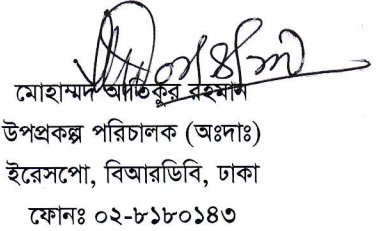 মোহাম্মদ আতিকুর রহমান
উপপ্রকল্প পরিচালক (অঃদাঃ)
ইরেসপো, বিআরডিবি, ঢাকা
ফোনঃ ০২-৮১৮০১৪৩